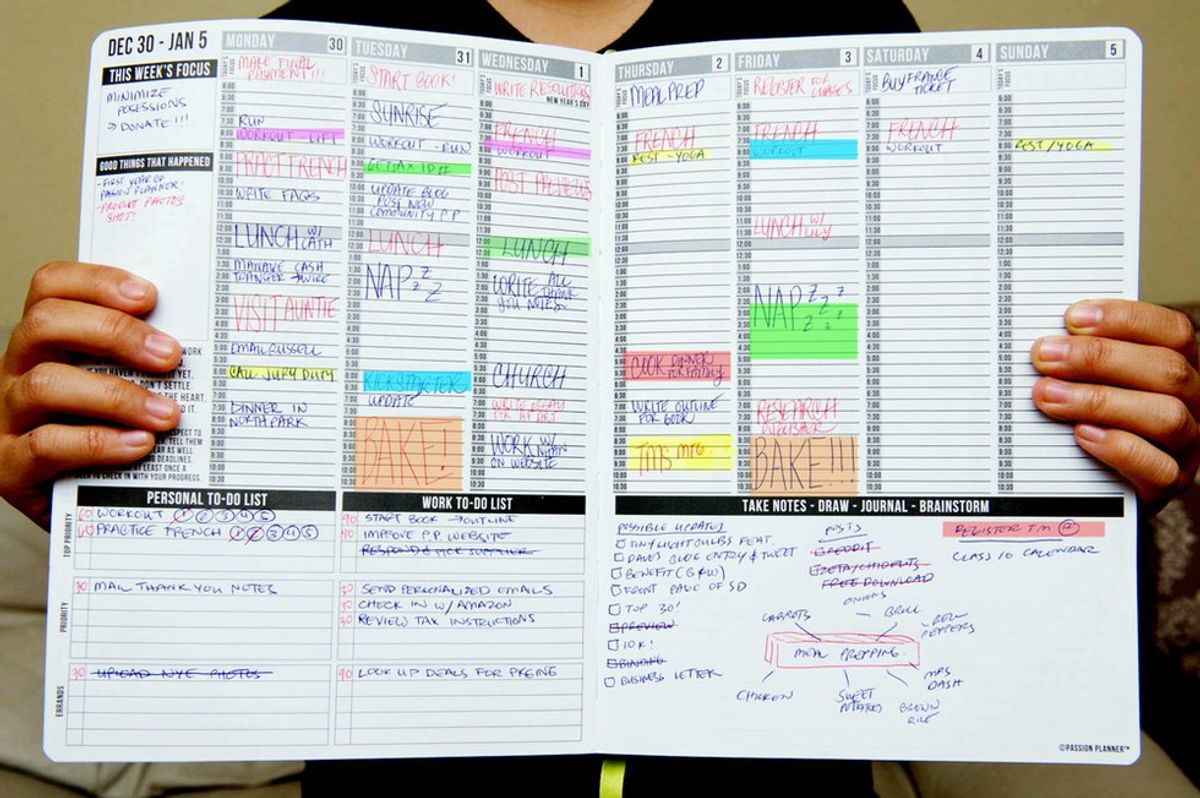 DEC 30 - JAN 5
THIS WEEK'S FOCUS
MINIMIZE
POSESSIONS
→ DONATE!!!
GOOD THINGS THAT HAPPENED
- FIRST YEAR OF
PASSION PLANNER!
- PRODUCT PHOTOS
SHOT!
MONDAY 30
TODAY'S FOCUS
MAKE FINAL
PAYMENT!!!
RUN
WORKOUT - LIFT
PRACT FRENCH
WRITE FAQS
LUNCH W/
CATH
MANAGE CASH
TRANSFER → WIRE
VISIT AUNTIE
EMAIL RUSSELL
CALL JURY DUTY
DINNER IN
NORTH PARK
TUESDAY 31
TODAY'S FOCUS
START BOOK!
SUNRISE
WORKOUT - RUN
GET TAX ID #
UPDATE BLOG
POST NEW
COMMUNITY P.P
LUNCH
NAP z z z
KICKSTARTER
UPDATE
BAKE!
WEDNESDAY 1
TODAY'S FOCUS
WRITE RESOLUTIONS
NEW YEAR'S DAY
FRENCH
WORKOUT
POST PREVIEWS
LUNCH
WRITE ALL
THANK
YOU NOTES
CHURCH
WRITE ESSAY
FOR AP ART
WORK W/
NHAN
ON WEBSITE
THURSDAY 2
TODAY'S FOCUS
MEAL PREP
FRENCH
REST - YOGA
COOK DINNER
FOR FAMILY
WRITE OUTLINE
FOR BOOK
TMS MTG.
FRIDAY 3
TODAY'S FOCUS
REGISTER FOR
CLASSES
FRENCH
WORKOUT
LUNCH W/
LILY
NAP z z z z z z
RESEARCH
BAKE!!!
SATURDAY 4
TODAY'S FOCUS
BUY FRANCE
TICKET
FRENCH
WORKOUT
SUNDAY 5
TODAY'S FOCUS
REST/YOGA
PERSONAL TO-DO LIST
TOP PRIORITY
60 WORKOUT 1 2 3 4 5
60 PRACTICE FRENCH 1 2 3 4 5
PRIORITY
30 MAIL THANK YOU NOTES
ERRANDS
30 UPLOAD NYE PHOTOS
WORK TO-DO LIST
90 START BOOK → OUTLINE
90 IMPROVE P.P. WEBSITE
RESPOND & PICK SUPPLIER
30 SEND PERSONALIZED EMAILS
30 CHECK IN W/ AMAZON
30 REVIEW TAX INSTRUCTIONS
90 LOOK UP DEALS FOR PKGING
TAKE NOTES - DRAW - JOURNAL - BRAINSTORM
POSSIBLE UPDATES
TINY LIGHTBULBS FEAT.
DAVES BLOG ENTRY & TWEET
BENEFIT (B & W)
FRONT PAGE OF SD
TOP 30!
PREVIEW
10K!
BINDING
BUSINESS LETTER
POSTS
REDDIT
FREE DOWNLOAD
REGISTER TM ®
CLASS 16 CALENDAR
ONIONS
CARROTS
BROLL
BELL
PEPPERS
MEAL PREPPING
CHICKEN
SWEET
POTATOES
BROWN
RICE
MRS
DASH
©PASSION PLANNER™